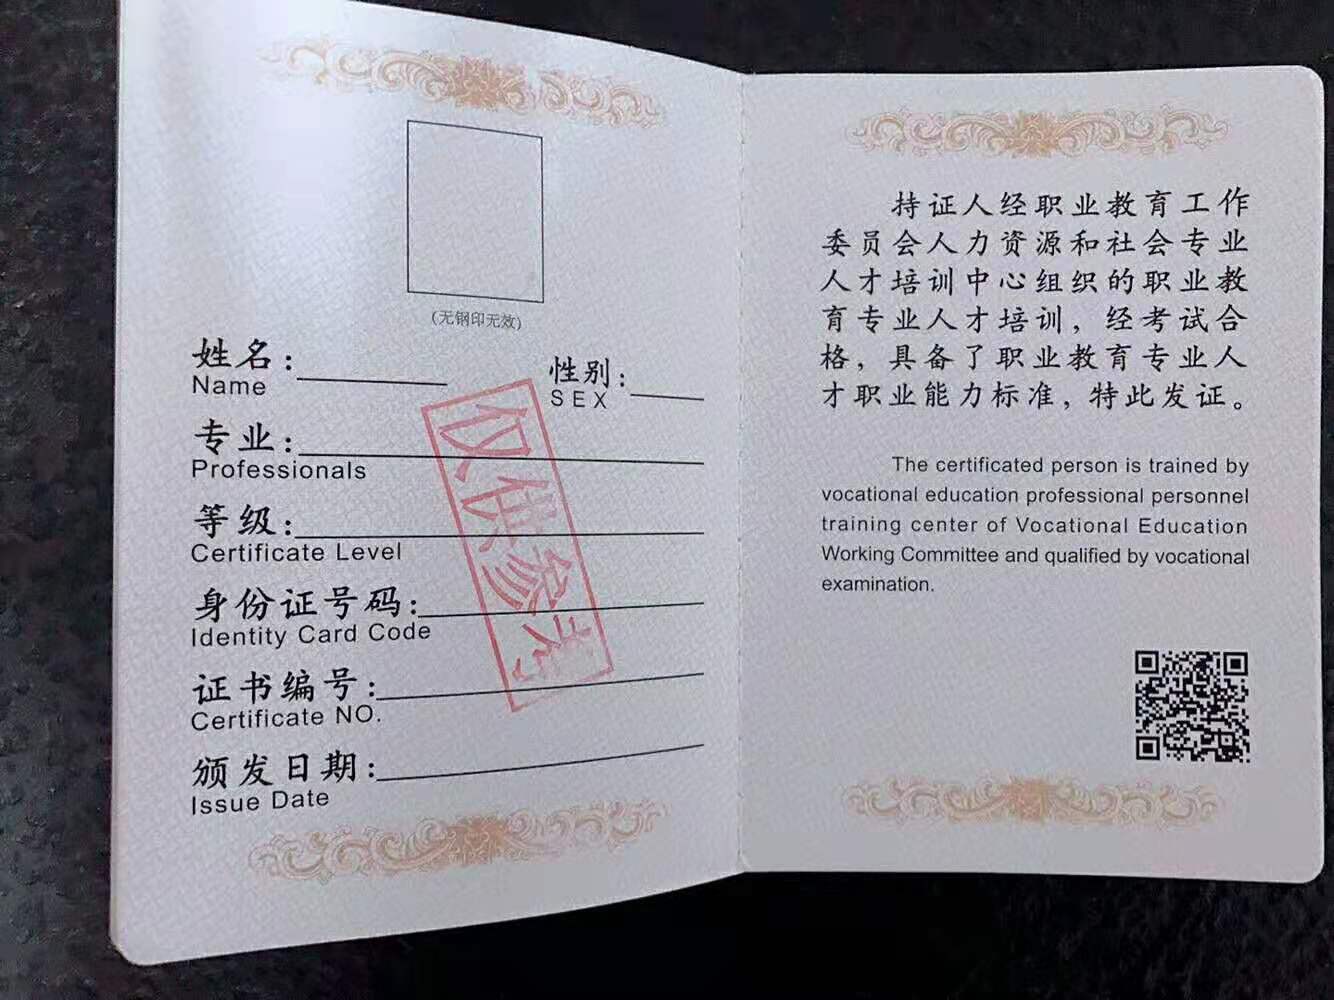 (无钢印无效)
姓名:
Name
性别:
SEX
专业:
Professionals
等级:
Certificate Level
身份证号码:
Identity Card Code
证书编号:
Certificate NO.
颁发日期:
Issue Date
仅供参考
持证人经职业教育工作
委员会人力资源和社会专业
人才培训中心组织的职业教
育专业人才培训，经考试合
格，具备了职业教育专业人
才职业能力标准，特此发证。
The certificated person is trained by
vocational education professional personnel
training center of Vocational Education
Working Committee and qualified by vocational
examination.